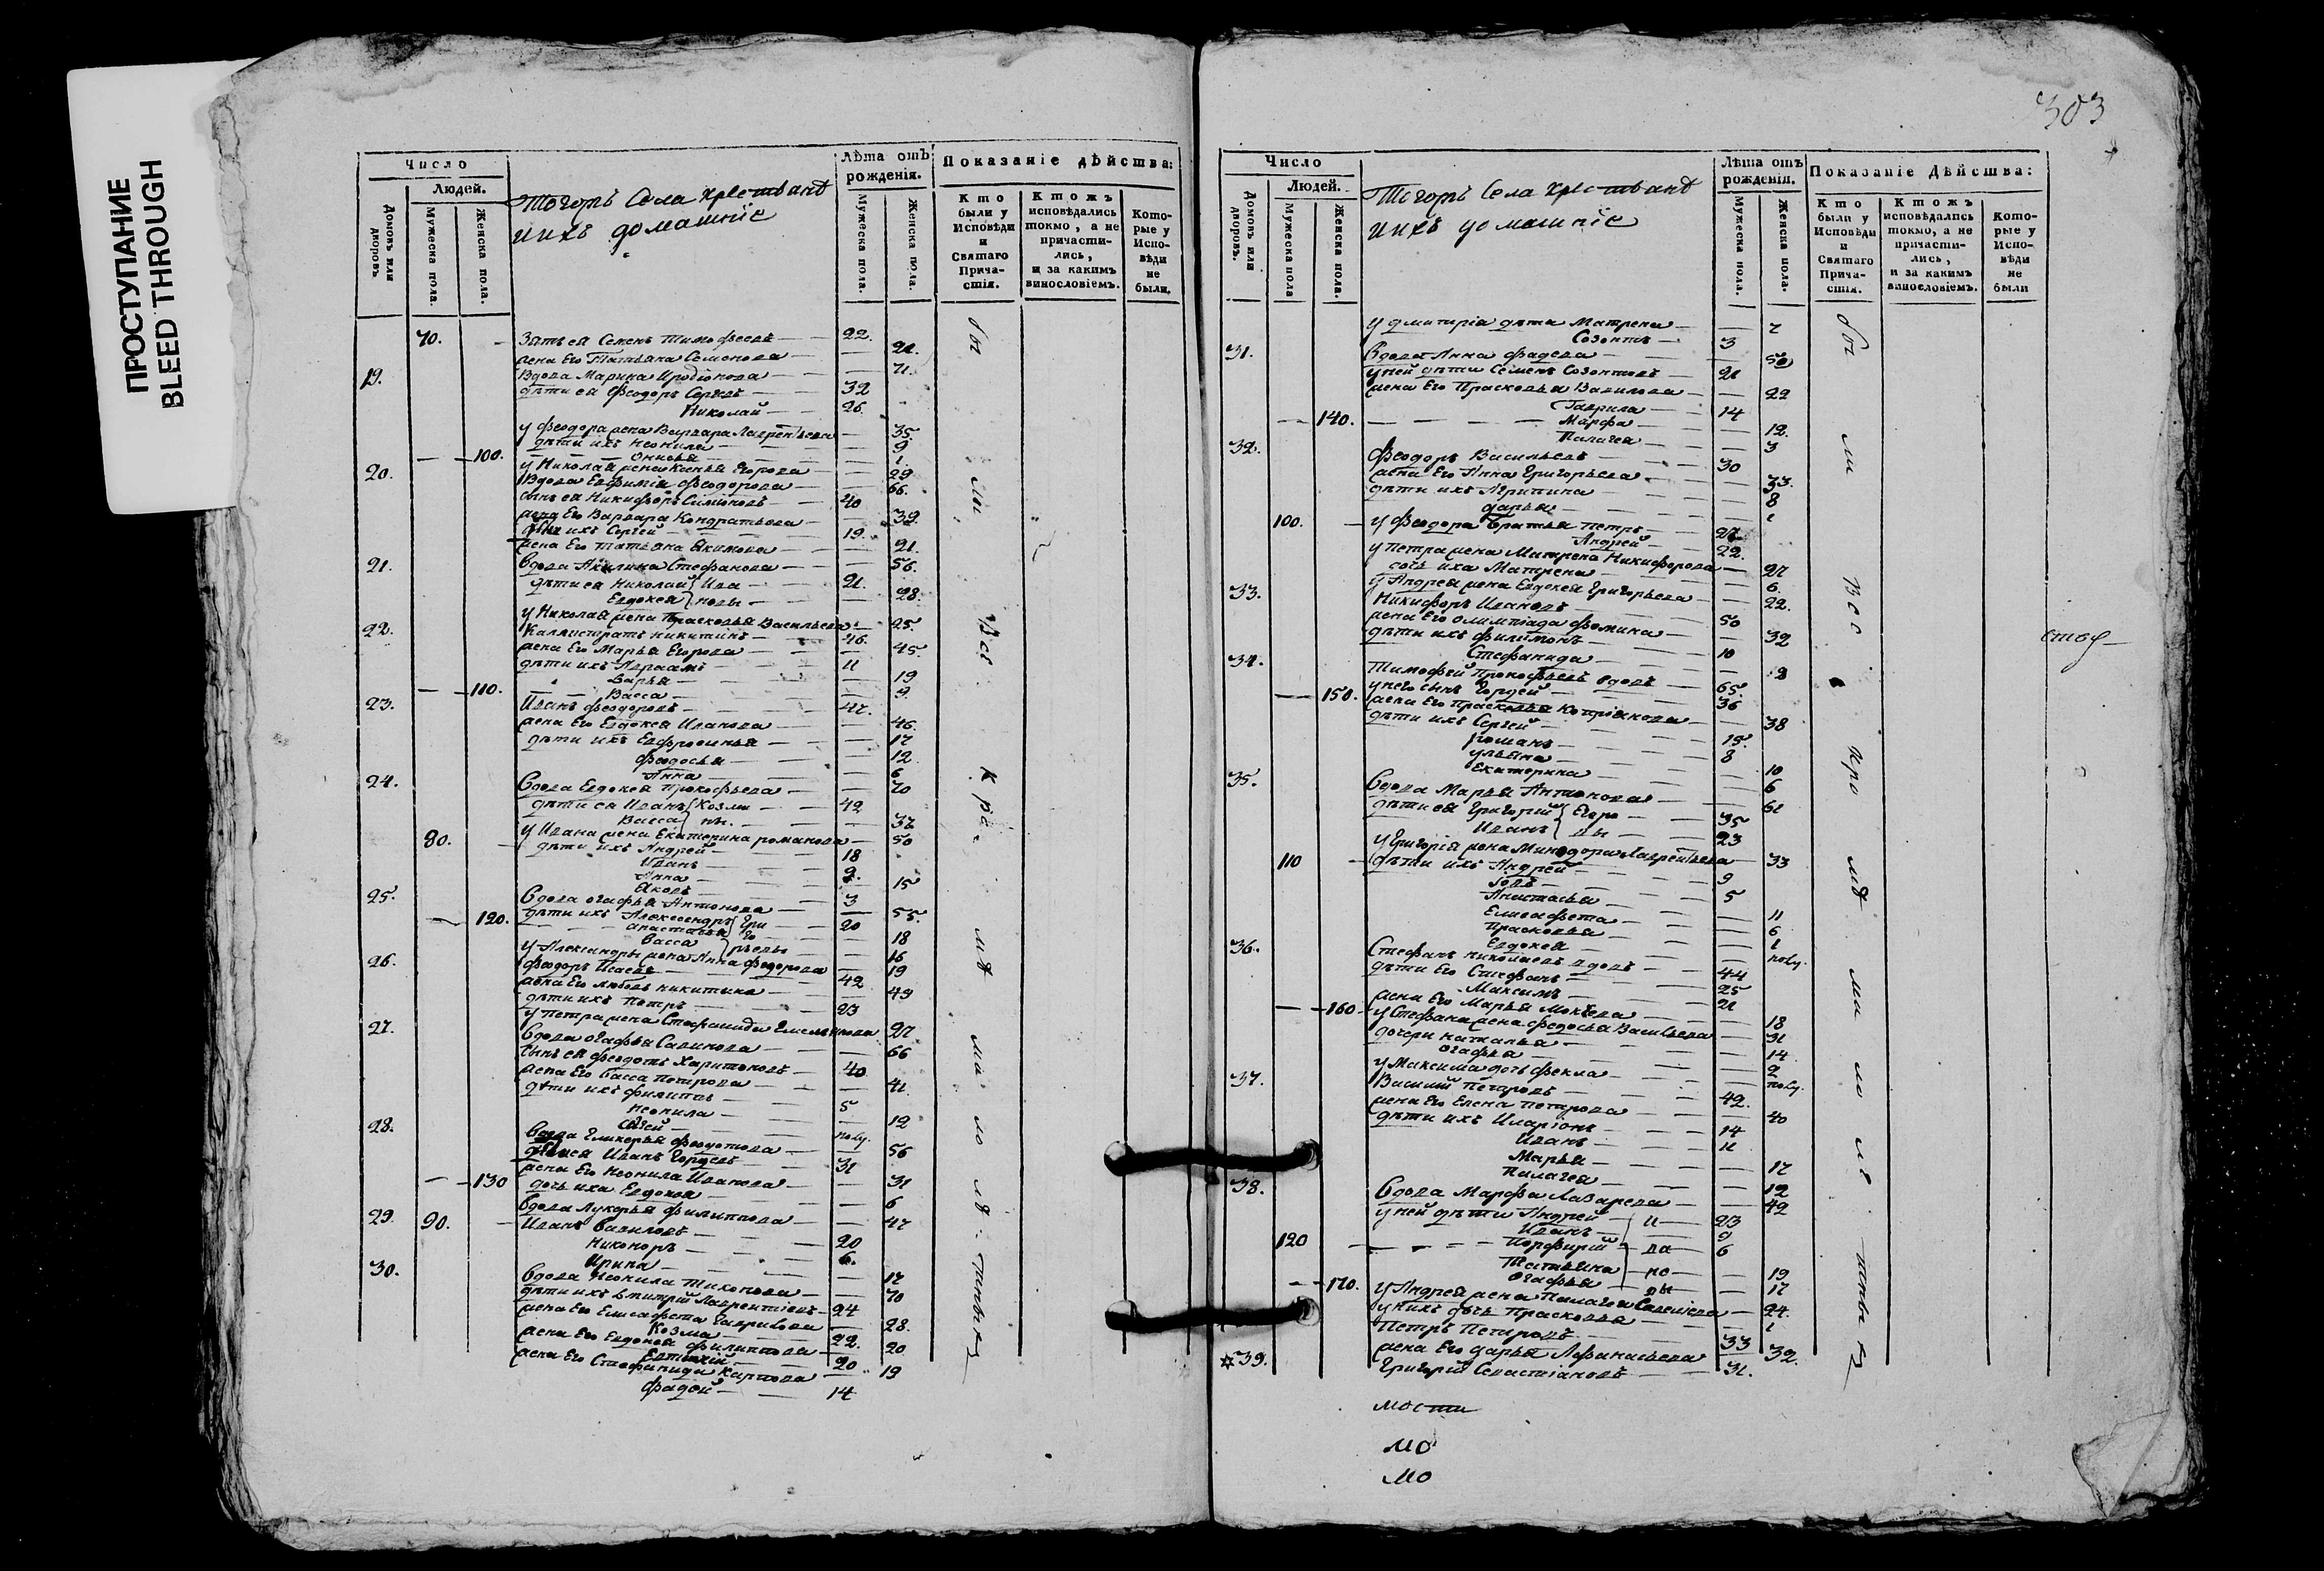 ПРОСТУПАНИЕ
BLEED THROUGH
Число
Людей.
Домовъ или дворовъ
Мужеска пола.
Женска пола.
Тогожъ Села
ихъ домашніе
Лѣта отъ рожденія.
Мужеска пола.
Женска пола.
Показаніе дѣйства:
Кто были у Исповѣди и Святаго Причастія.
Ктожъ исповѣдались токмо, а не причастились, и за какимъ винословіемъ.
Которые у Исповѣди не были.
70. Зять ея Семенъ Тимофеевъ 22.
жена Его Татьяна Семенова 21.
19. Вдова Марина Иродіонова 71.
дѣти ея Феодоръ Сергѣевъ 32
Николай 26
у Феодора жена Варвара Лаврентьева 35.
дѣти ихъ Неонила 9
100. Онисья 1.
у Николая жена Ксенья Егорова 29
20. Вдова Евфимія Феодорова 66.
сынъ ея Никифоръ Симоновъ 40
жена Его Варвара Кондратьева 39.
ихъ Сергей 19.
жена Его Татьяна Екимова 21.
21. Вдова Акилина Стефанова 56.
дѣти ея Николай Ива 21.
Евдокея новы 28.
у Николая жена Прасковья Васильева 25.
22. Каллистратъ Никитинъ 46.
жена Его Марья Егорова 45
дѣти ихъ Авраамъ 11
Дарья 19
110. Васса 9.
23. Иванъ Феодоровъ 47.
жена Его Евдокея Иванова 46.
дѣти ихъ Евфросинья 17
Феодосья 12
Анна 6
24. Вдова Евдокея Прокофьева 70
дѣти ея Иванъ Козми 42
Васса ны. 37
80. у Ивана жена Екатерина Романова 50
дѣти ихъ Андрей 18
Иванъ 9.
Анна 15
Яковъ 3
25. Вдова Огафья Антонова 55.
дѣти ихъ Александръ Гри 20
120. Анастасья го 18
Васса рьевы 16
у Александры жена Анна Федорова 19
26. Феодоръ Исаевъ 42
жена Его Любовь Никитина 49
дѣти ихъ Петръ 23
у Петра жена Стефанида Емельянова 27
27. Вдова Огафья Савинова 66
сынъ ея Феодотъ Харитоновъ 40
жена Его Васса Петрова 41.
дѣти ихъ Филиппъ 5
Неонила 12
полу.
28. Вдова Гликерья Феодотова 56
Иванъ Гордеевъ 31
жена Его Неонила Иванова 31
130 дочь ихъ Евдокея 6
Вдова Лукерья Филиппова 47
29. 90. Иванъ Вавиловъ 20
Никоноръ 6.
Ирина 17
30. Вдова Неонила Тихонова 70
дѣти ихъ Дмитрій Лаврентіевъ 24
жена Его Елисафета Гаврилова 28.
Козма 22.
жена Его Евдокея Филиппова 20
Евтихій 20
жена Его Стефанида Карпова 19
Фадей 14
бы
ли
Все
мо
303
Число
Людей.
Домовъ или дворовъ.
Мужеска пола
Женска пола.
Тогожъ Села
ихъ домашніе
Лѣта отъ рожденія.
Мужеска пола.
Женска пола.
Показаніе Дѣйства:
Кто были у Исповѣди и Святаго Причастія.
Ктожъ исповѣдались токмо, а не причастились, и за какимъ винословіемъ.
Которые у Исповѣди не были
у Дмитрія дѣти Матрена 7
Созонтъ 3
31. Вдова Анна Фадеева 50
у ней дѣти Семенъ Созонтовъ 21
жена Его Прасковья Вавилова 22
Гаврила 14
140. Марфа 12.
Палагея 3
32. Феодоръ Васильевъ 30
жена Его Анна Григорьева 33.
дѣти ихъ Агрипина 8
Дарья 1
100. у Феодора братья Петръ 27
Андрей 22.
у Петра жена Матрена Никифорова 27
дочь ихъ Матрена 6.
у Андрея жена Евдокея Григорьева 22.
33. Никифоръ Ивановъ 50
жена Его Олимпіада Фомина 39
дѣти ихъ Филимонъ 10
Стефанида 9
34. Тимофей Прокофьевъ вдовъ 65.
150. у него сынъ Гордей 36
жена Его Прасковья Копріянова 38
дѣти ихъ Сергей 15.
Романъ 8
Ульяна 10
Екатерина 6
35. Вдова Марья Антонова 61
дѣти ея Григорій Егоро 35
Иванъ вы 23
у Григорія жена Минодора Лаврентьева 33
110 дѣти ихъ Андрей 9
5
Анастасья 11
Елисафета 6
Прасковья 1
Евдокея полу.
36. Стефанъ Николаевъ вдовъ 44
дѣти Его Стефанъ 25
Максимъ 21
жена Его Марья Мокѣева 18
160. у Стефана жена Федосья Васильева 31
дочери Наталья 14
Огафья 2
у Максима дочь Фекла полу.
37. Василій Петровъ 42.
жена Его Елена Петрова 40
дѣти ихъ Иларіонъ 14
Иванъ 11
Марья 17
Палагея 12
38. Вдова Марфа Лазарева 42
у ней дѣти Андрей И 23
Иванъ 9
120 Порфирій ва 6
Татьяна но 19
Огафья вы 17
170. у Андрея жена Палагея Савельева 24.
у нихъ дочь Прасковья 1
Петръ Петровъ 33
жена Его Дарья Афанасьева 32.
39. Григорій Севастіановъ 31.
бы
ли
Все
мости
мо
мо